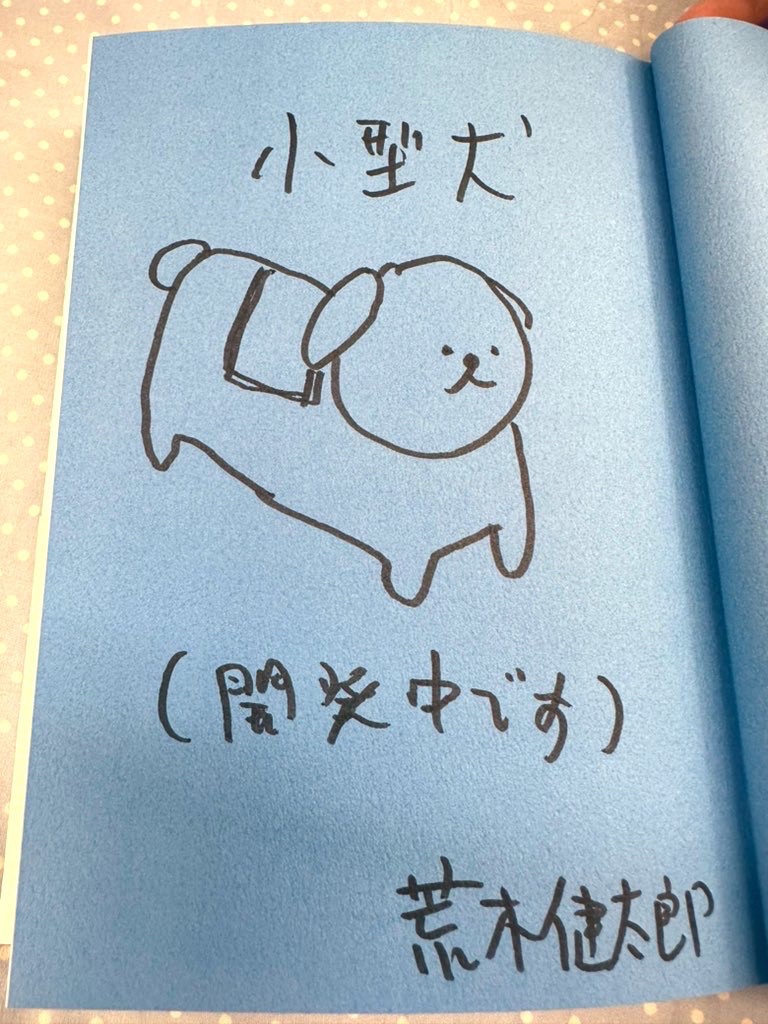 小型犬
(開発中です)
荒木健太郎